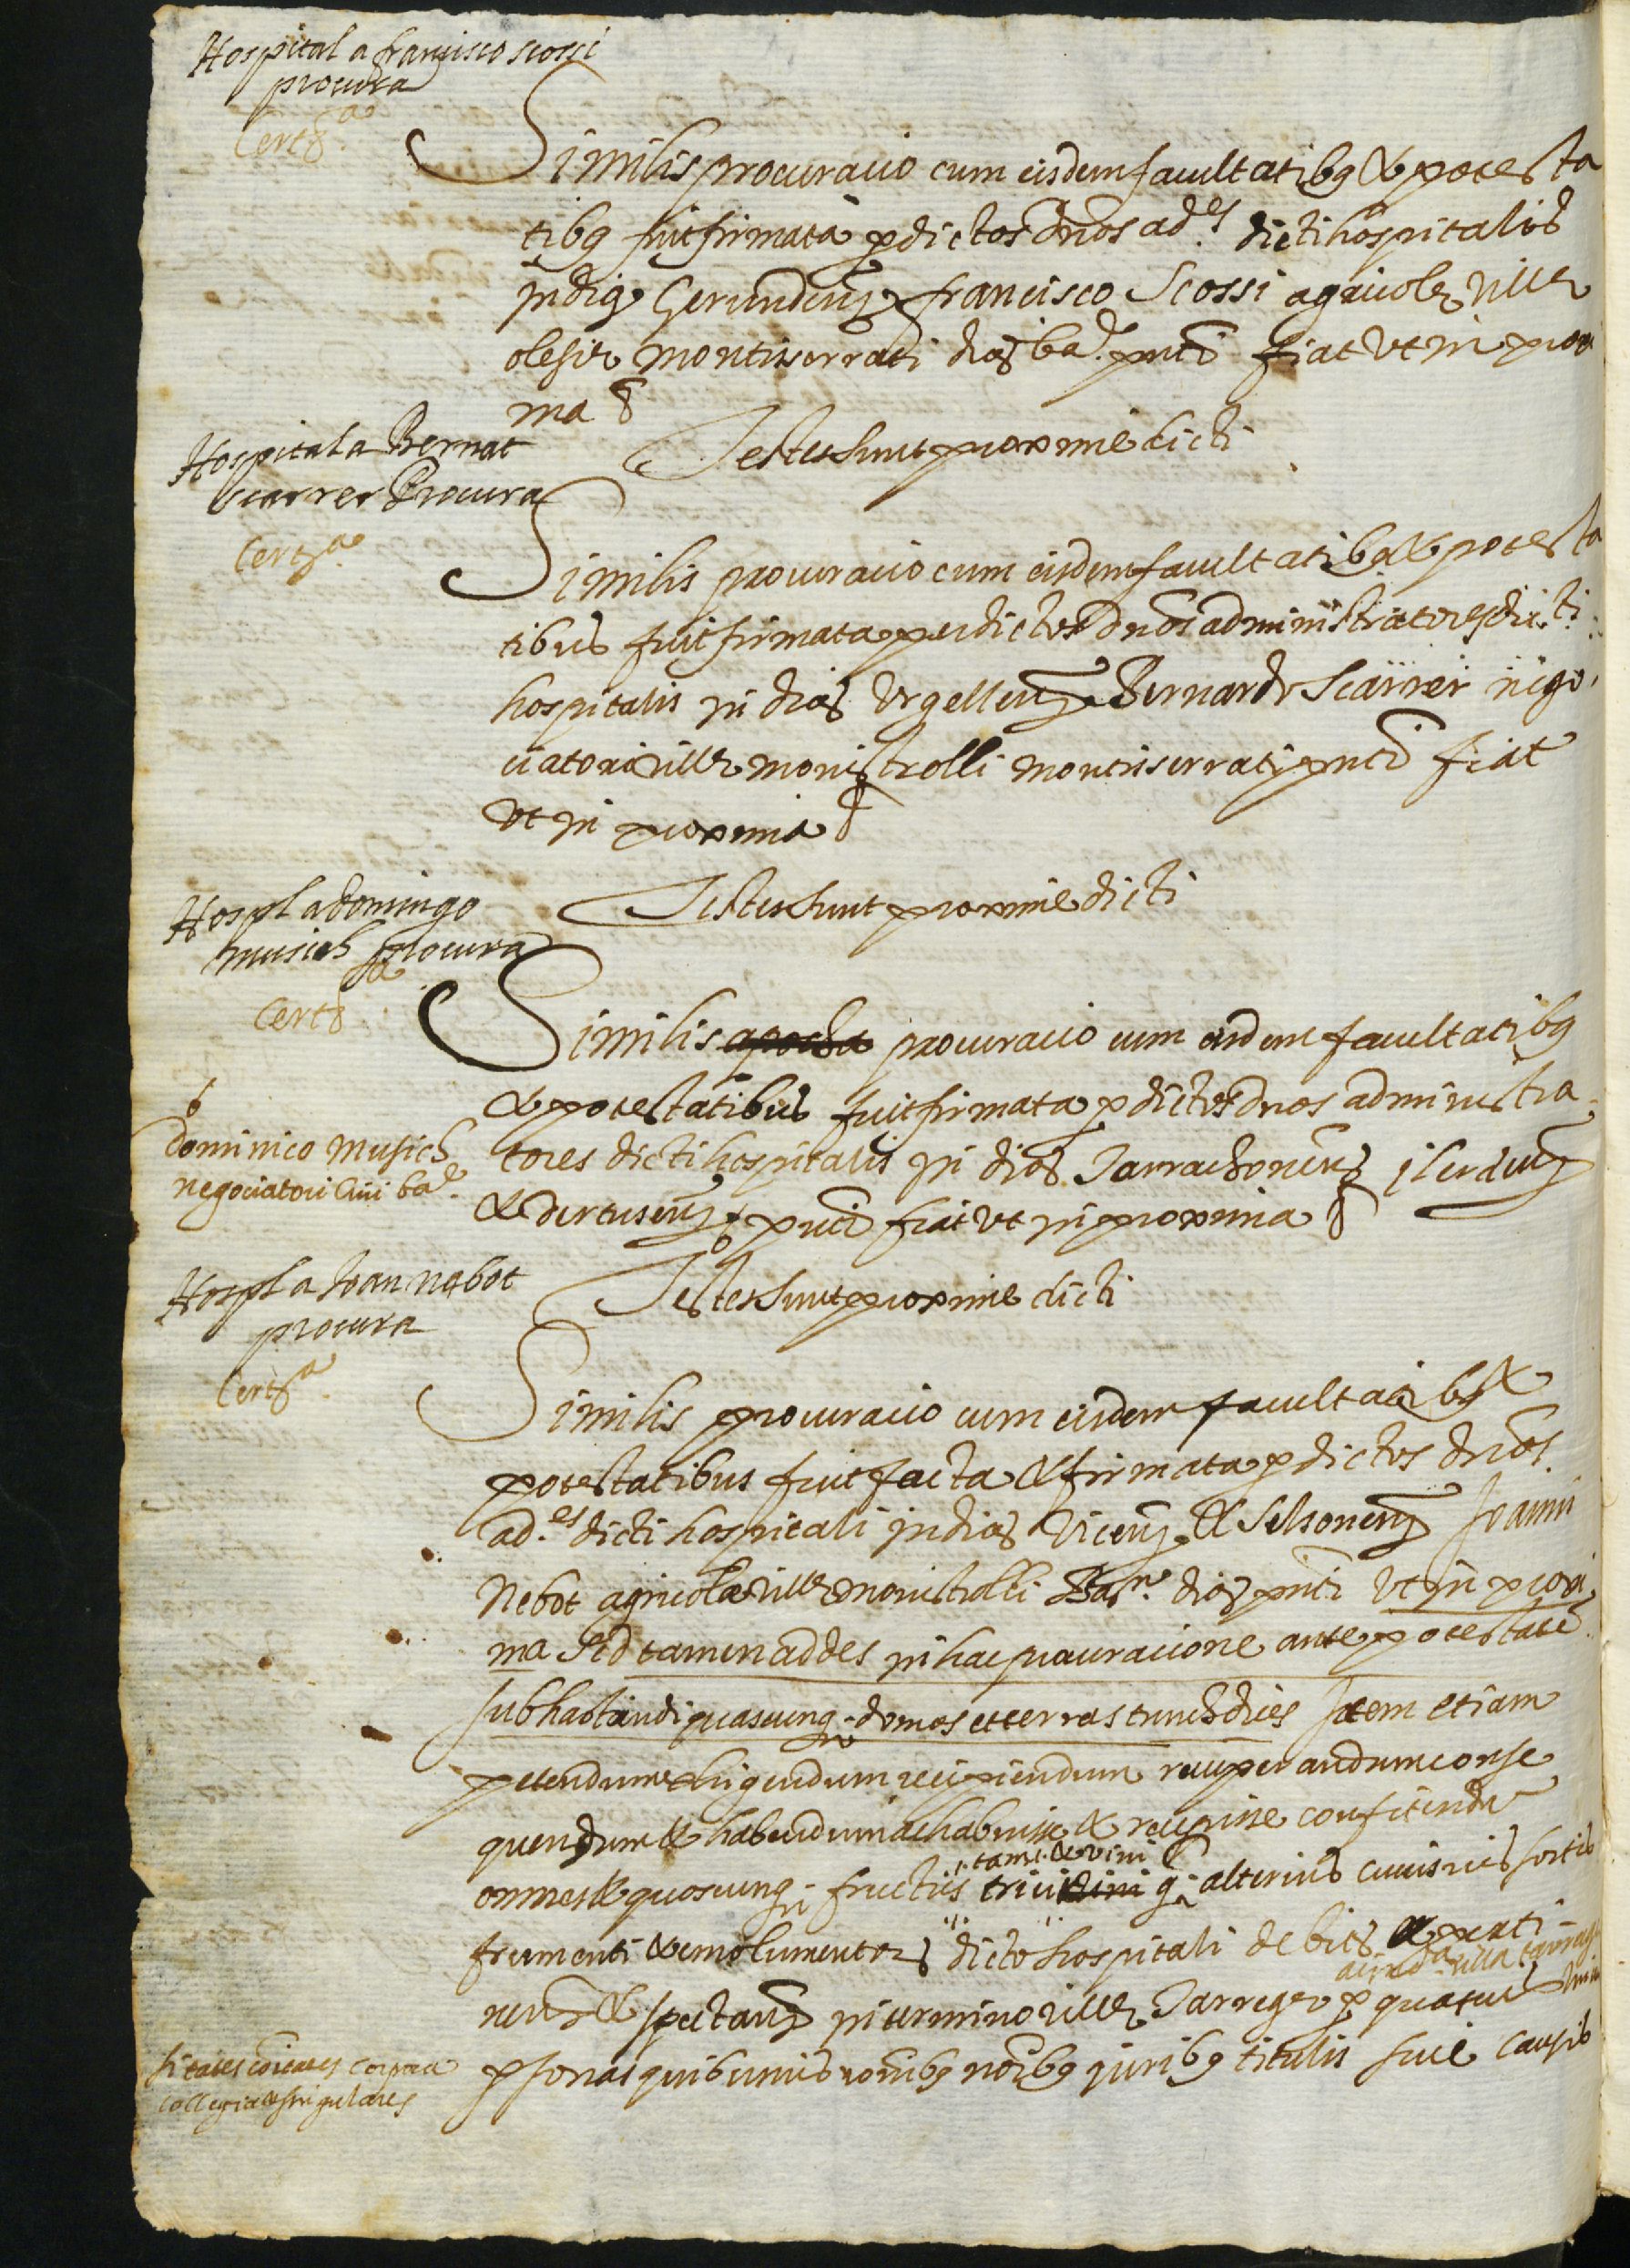 Hospital a francisco scossi
procura
Certa
Similis procuracio cum eisdem facultatibq & potesta
tibq fuit firmata p dictos dnos ades dicti hospitalis
in dioz Gerunden francisco Scossi agricole ville
olesie montisserrati dioz ba. pnti fiat ut in proxi
ma
Testes sunt proxime dicti
Hospital a Bernat
scarrer Procura
Certa
Similis procuracio cum eisdem facultatibq & potesta
tibus fuit firmata per dictos dnos administratores dicti
hospitalis in dioz Urgellen Bernardo Scarrer nego
ciatori ville monistrolli montisserrati pnti fiat
ut in proxima
Testes sunt proxime dicti
Hospl a domingo
musich procura
Certa
Similis apocha procuracio cum eisdem facultatibq
& potestatibus fuit firmata p dictos dnos administra
tores dicti hospitalis in dioz Tarrachonen ilerden
& dertusen pnti fiat ut in proxima
dominico Musich
negociatori civi ba
Testes sunt proxime dicti
Hospl a Joan nebot
procura
Certa
Similis procuracio cum eisdem facultatibq &
potestatibus fuit facta & firmata p dictos dnos
ad.es dicti hospitali in dioz Vicen & Selsonen Joanni
Nebot agricola ville monistrolli dioz pnti ut in proxi
ma sed tamen addes in hac procuracione ante potestate
subhastandi quascunq domos et terras tunch dices Item etiam
petendum exhigendum recipiendum recuperandum conse
quendum & habendum ac habuisse & recepisse confitendu
omnes & quoscunq fructus tritici q alterius cuiusvis sortis
tam & vini
frumenti & emolumentor dicto hospitali debits & perti
nens & spectans in termino ville Tarrege p quascu
psonas quibusvis noibq juribq titulis sive causis
collegia & singulares